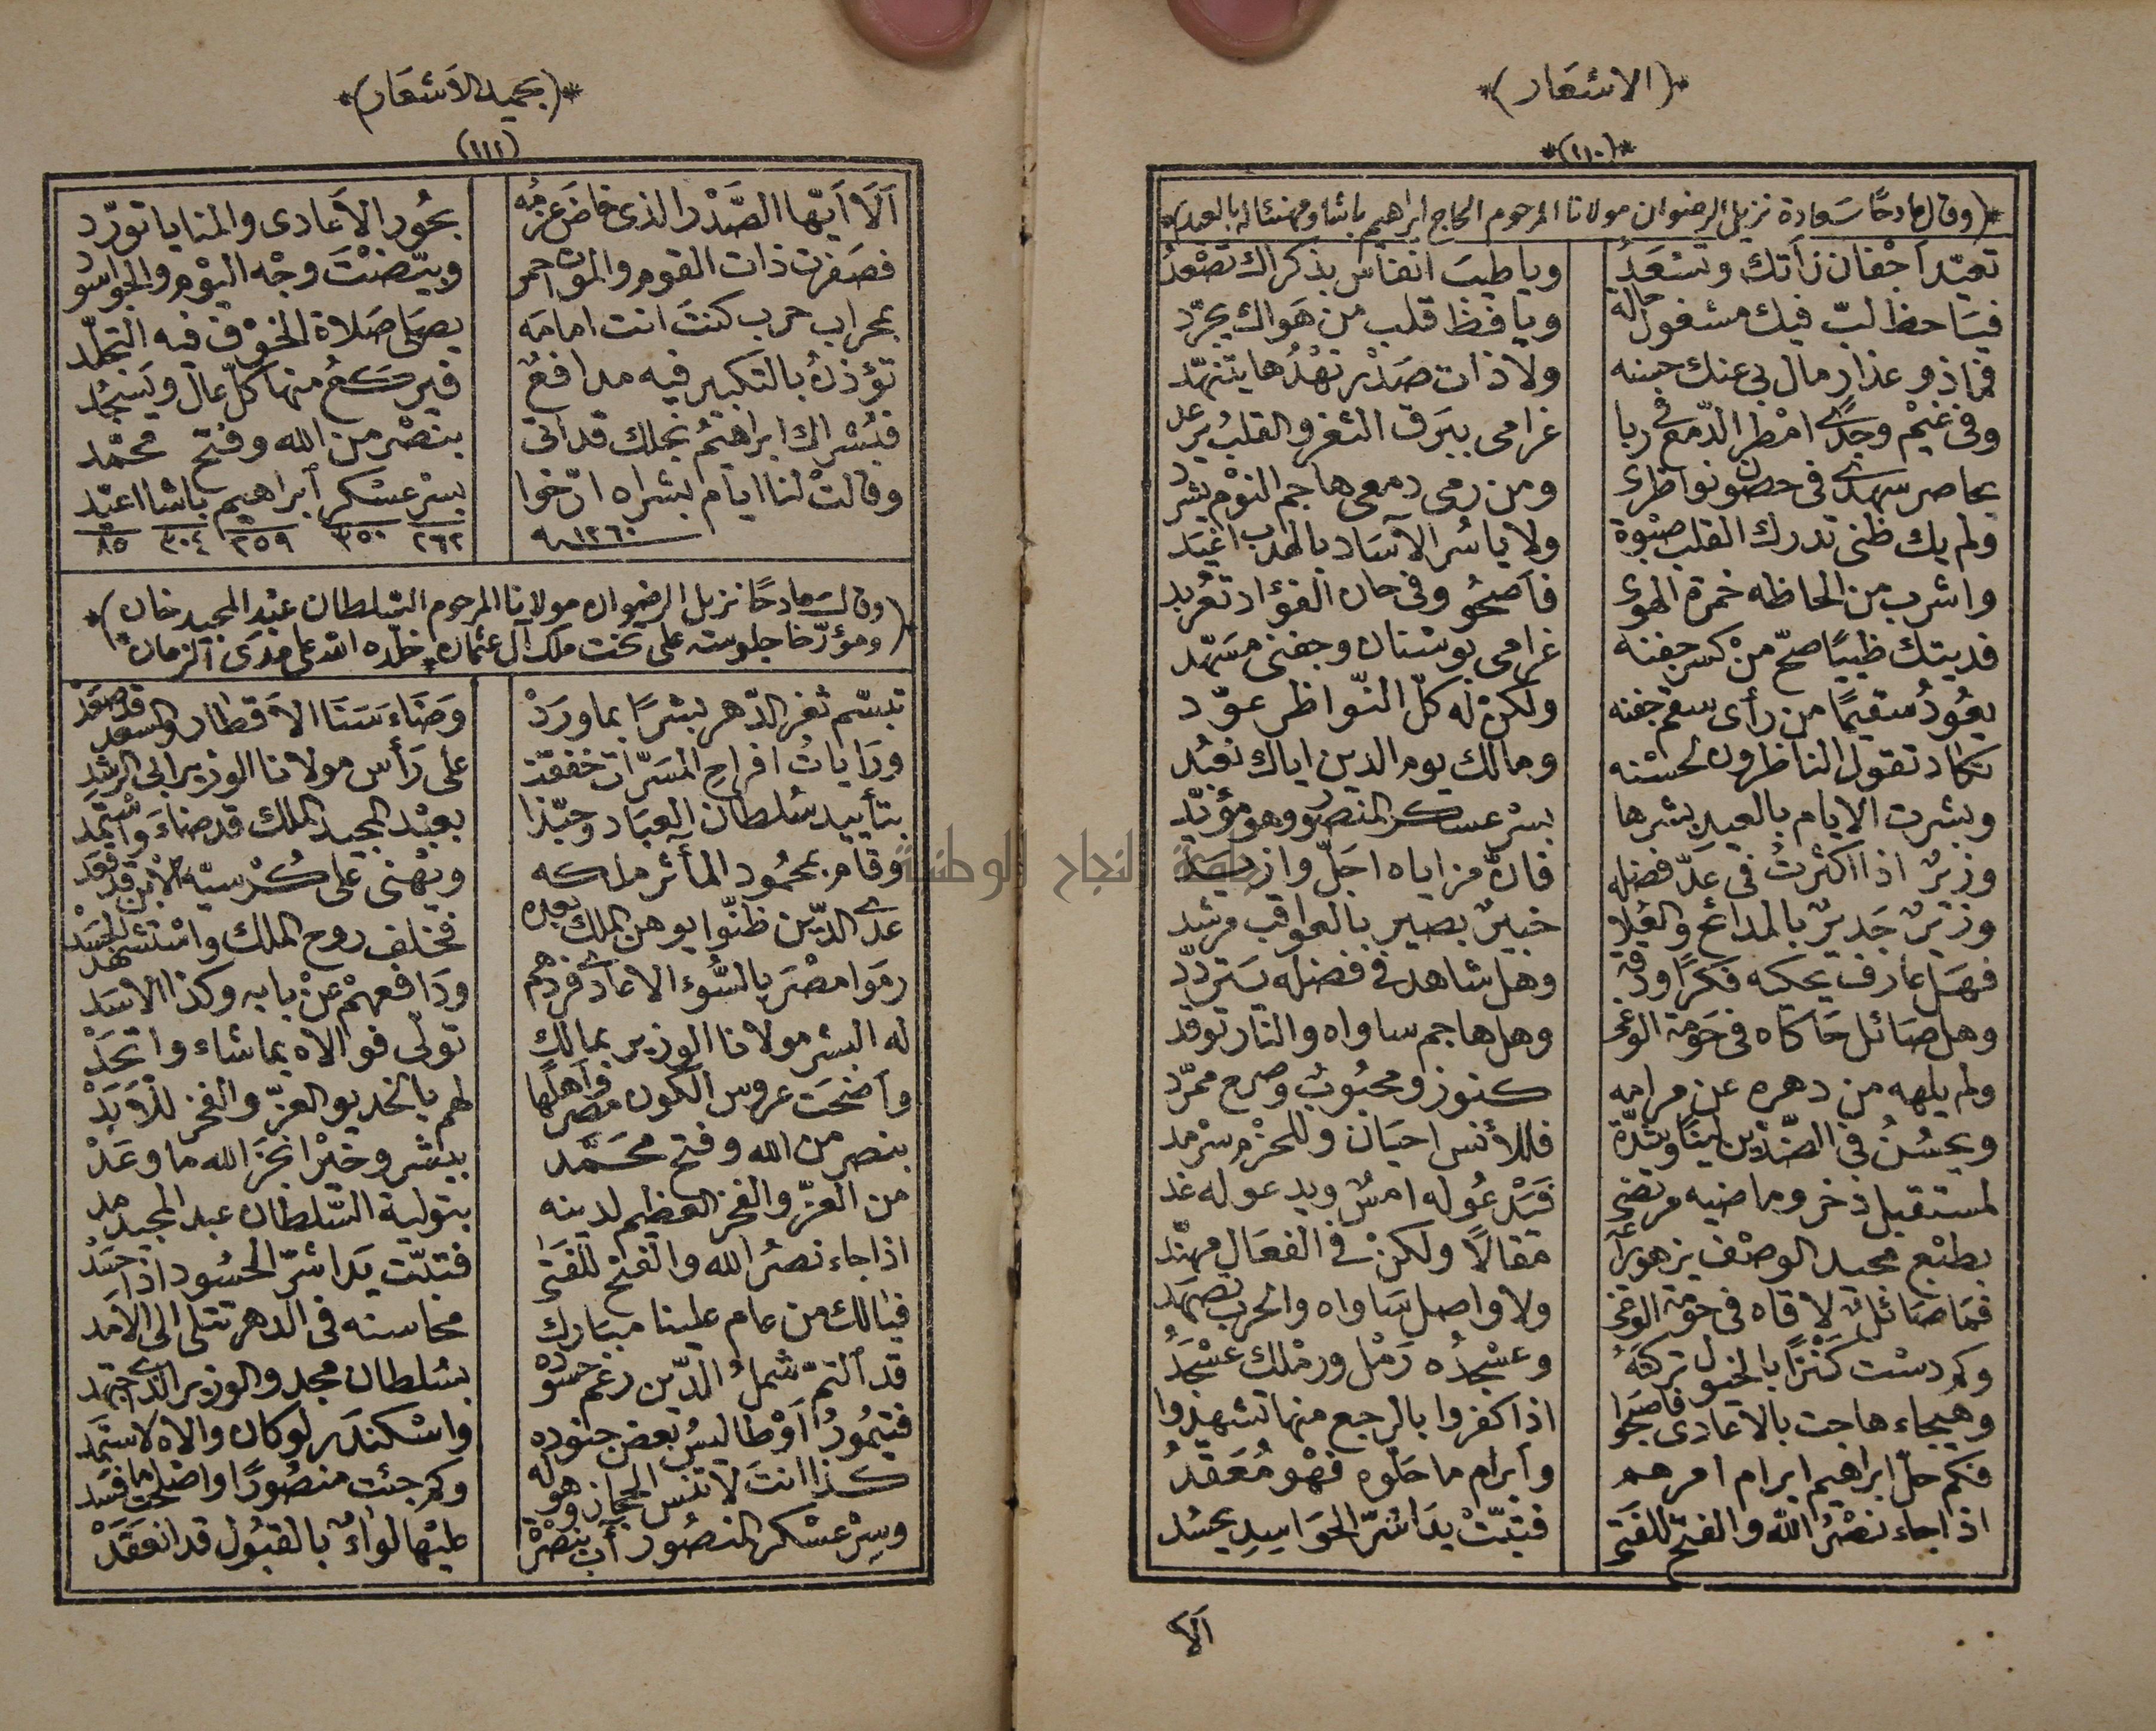 *(الاشعار)*
*(١١٠)*
*(وقال مادحًا سعادة نزيل الرضوان مولانا المرحوم الحاج ابراهيم باشا ومهنئا له بالعيد)*
تعيّد اجْفان رَأتك وتسْعَدُ ويا طيبَ انفاس بذكراك تصْعدُ
فيَا حظ لبّ فيك مشغول حاله ويا فظ قلب من هَواك يجرّد
فما ذو عذار مال بى عنك جبينه ولا ذات صَدْر نهْدُها يتنهّد
وفى غيْم وجدى امْطر الدّمع فى ربا غرامى ببَرق الثغر والقلبُ يرعد
يحاصر سهدى فى حصون نواظرى ومن رمى دمعى هاجم النوْم يشرد
ولم يك ظنى تدرك القلب صبْوة ولا ياسُر الآسَاد بالهدب اغيَد
واشرب من الحاظه خمرة الهوى فأصْحُو وفى حان الفؤاد تعرْبد
فديتك ظبيًا صحّ منْ كسر جفنه غرامى بوسْنان وجفنى مسَهّد
يعُودُ سقيمًا من رأى سقم جفنه ولكنْ له كلّ النّواظر عوّد
تكاد تقول الناظرون لحسْنه ومالك يوم الدين اياك نعْبُد
وبشرت الايام بالعيد بشرها بسرْ عسكر المنصُور وهو مؤيّد
وزيرٌ اذا اكثرتُ فى عدّ فضله فانّ مزاياه اجَلّ وازيَد
وزيرٌ جَديرٌ بالمدائح والعُلا خبيرٌ بصير بالعواقب مرشد
فهَل عارف يحكيه فكرًا ودقة وهل شاهد فى فضله يَتردّد
وهل صَائل حَاكاه فى حَومة الوغى وهل هاجم ساواه والنار توقد
ولم يلهه من دهره عن مرامه كنوز ومحبُوبٌ وصرح ممرّد
ويحسُنُ فى الضّدّين لينًا وشدّة فللأنس احيَان وللحزْم سرْمد
لمستقبل ذخر وماضيه مرتضى فَيَدْعُوله امسٌ ويدعوله غد
بطبْع مجيد الوصْف يزهو مقالًا ولكنْ فى الفعَال مهنّد
فمَا صَائلٌ لاقاه فى حَوْمة الوغى ولا واصل سَاواه والحرب تصهَد
وكم دسْت كنْزًا بالخيول تركتَهُ وعسْجدُه رَمْل ورمْلك عسْجَدُ
وهيجاء هاجت بالاعادى فاصبَحوا اذا كفروا بالرجع منها تشهدوا
فكم حلّ ابراهيم ابرام امرهم وأبرام ما حَلّوه فهْو مُعَقّدُ
اذا جاء نصْرُ اللّه والفتح للفتى فتبّتْ يدَا شرّ الحَواسِيدِ يحسُد
الا
*(بحميد الاشعار)*
(١١١)
اَلَا اَيّها الصَّدْر الذى خاضَ عَزمُه بحُور الأعادى والمنايا تورّد
فصَفرت ذات القوم والموت احمر وبيّضْتَ وجْه اليوْم والجوّ اسود
بمحراب حرب كنتَ انت امامَه يصلى صَلاة الخوْف فيه التجلّد
تؤذنُ بالتكبير فيه مدافعٌ فيركعُ منها كلّ عال ويَسْجُد
فبُشْراك ابراهيمُ نجلك قد اتى بنصْر من الله وفتح محمّد
وقالتْ لنا ايام بشراه ارّخوا بسر عسْكر ابراهيم باشا اعيّد
١٢٦٠ ٢٦٢ ٣٥٠ ٢٥٩ ٣٠٤ ٨٥
*(وقال مادحًا نزيل الرضوان مولانا المرحوم السّلطان عبْد المجيد خان
ومؤرّخا جلوسه على تخت ملك آل عثمان خلّده الله على مدَى الزمان)*
تبسّم ثغر الدّهر بشرًا بما ورَدْ وَضَاء سَنَا الأقطار والسعد قد صَعَدْ
ورَاياتُ افراح المسَرّات خفّقتْ على رَأس مولانا الوزير ابى الرشد
بتأييد سُلطان العبَاد وحبّذا بعبْد المجيد الملك قد ضاءَ واسْتمد
وقام بمحمُود المأثر ملكه ويهْنى على كُرْسيّه
عدى الدّين ظنّوا يوهن الملك بعده فخلف روح الملك واسْتشهد الجسَد
رمَوا مصْرَ بالسُّوء الاعادى فردّهم ودَافعهمْ عنْ بابه وكذا الاسَد
له البشر مولانا الوزير بمالك تولّى فوالاه بما شاء واتحَدْ
وأضحَت عروس الكون مصر وأهلها لهم بالخديو العزّ والفخر للأبَدْ
بنصر من الله وفتح محَمَّد ببشر وخيْر انجَز الله ما وعَدْ
من العزّ والفخر العظيم لدينه بتولية السّلطان عبد المجيد مد
اذا جاء نصْرُ الله والفتح للفَتى فتبّت يَدا شرّ الحسُود اذا حسَدْ
فيالك من عام علينا مبَارك محاسنه فى الدهر تتلى الى الأمد
قد التمّ شملُ الدّين رغم حسوده بسُلطان مجد والوزير الذى اجتهد
فتيمُورُ أوْطاليسُ بعض جنوده واسْكندَر لو كان والاه لاستَمد
كذا انتَ لا تنس الحجاز وهوله وكم جئت منصُورًا واصْلحت ما فسَد
وسِرْ عسْكر المنصُور آب بنصْرة عليْها لواءٌ بالقبُول قد انعقَدْ
جامعة النجاح الوطنية